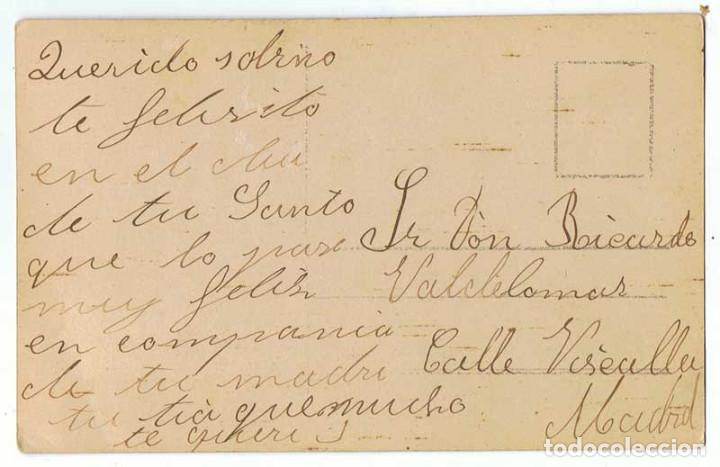 Querido sobrino
te felisito
en el dia
de tu Santo
que lo pase
muy felis
en compania
de tu madre
tu tia que mucho
te quere
Sr Don Ricardo
Valdelomar
Calle
Madrid
todocoleccion.net